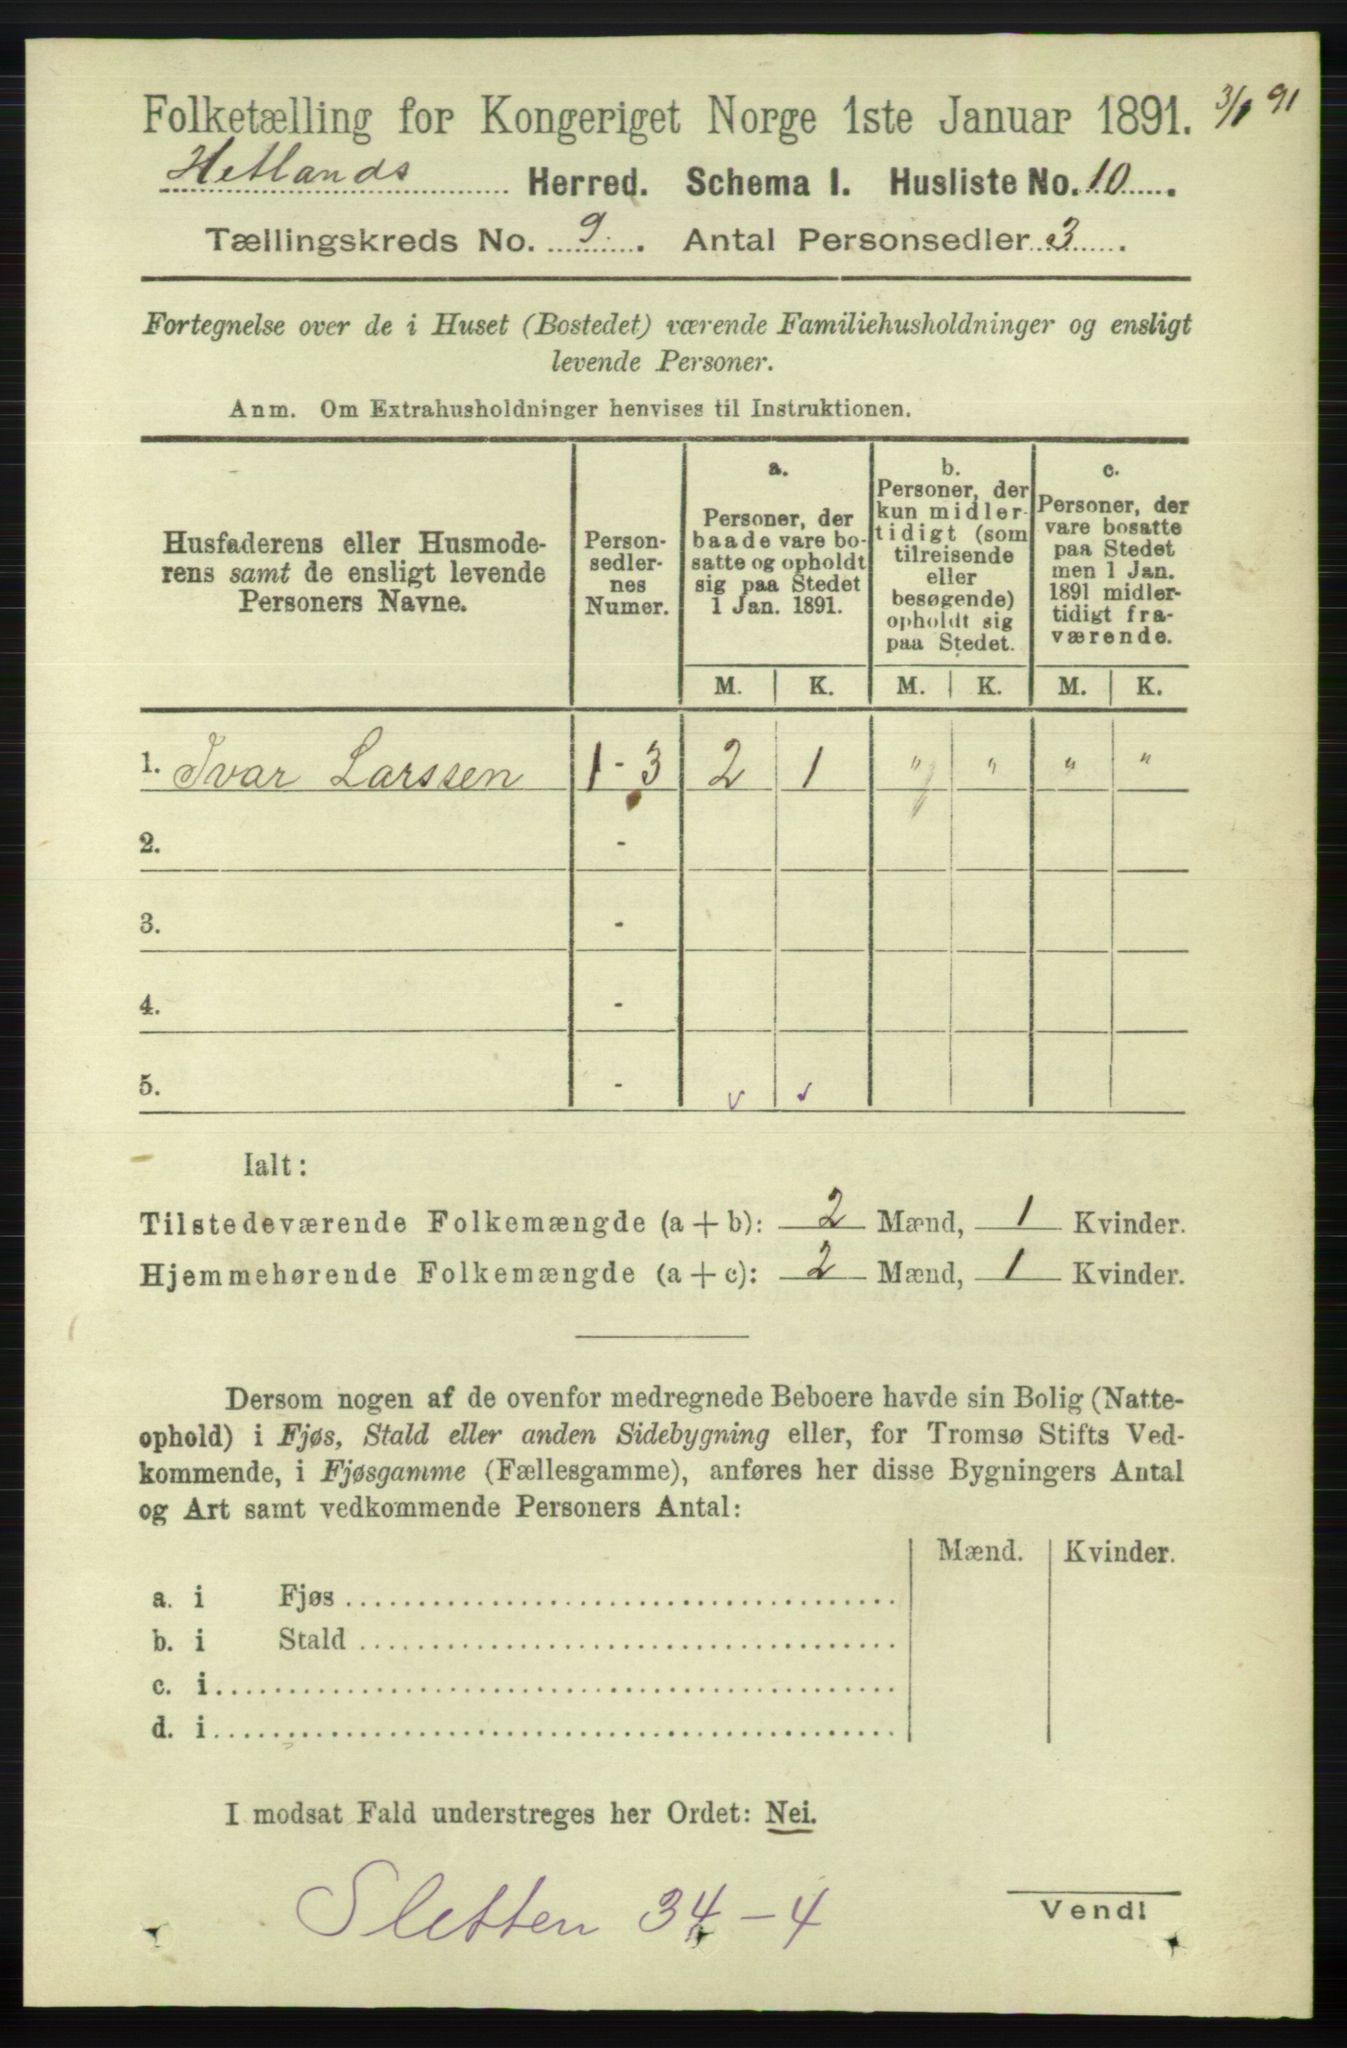 Folketælling for Kongeriget Norge 1ste Januar 1891. 3/1 91
Hetlands Herred. Schema I. Husliste No. 10.
Tællingskreds No. 9. Antal Personsedler 3.
Fortegnelse over de i Huset (Bostedet) værende Familiehusholdninger og ensligt
levende Personer.
Anm. Om Extrahusholdninger henvises til Instruktionen.
Husfaderens eller Husmode-
rens samt de ensligt levende
Personers Navne.
Person-
sedler-
nes
Numer.
a.
Personer, der
baade vare bo-
satte og opholdt
sig paa Stedet
1 Jan. 1891.
b.
Personer, der
kun midler-
tidigt (som
tilreisende
eller
besøgende)
opholdt sig
paa Stedet.
c.
Personer, der
vare bosatte
paa Stedet
men 1 Jan.
1891 midler-
tidigt fra-
værende.
M. K. M. K. M. K.
1. Ivar Larssen 1 - 3 2 1 " " " "
2. -
3. -
4. -
5. -
Ialt:
Tilstedeværende Folkemængde (a + b): 2 Mænd, 1 Kvinder.
Hjemmehørende Folkemængde (a + c): 2 Mænd, 1 Kvinder.
Dersom nogen af de ovenfor medregnede Beboere havde sin Bolig (Natte-
ophold) i Fjøs, Stald eller anden Sidebygning eller, for Tromsø Stifts Ved-
kommende, i Fjøsgamme (Fællesgamme), anføres her disse Bygningers Antal
og Art samt vedkommende Personers Antal:
Mænd. Kvinder.
a. i Fjøs
b. i Stald
c. i
d. i
I modsat Fald understreges her Ordet: Nei.
Sletten 34 - 4
Vend!